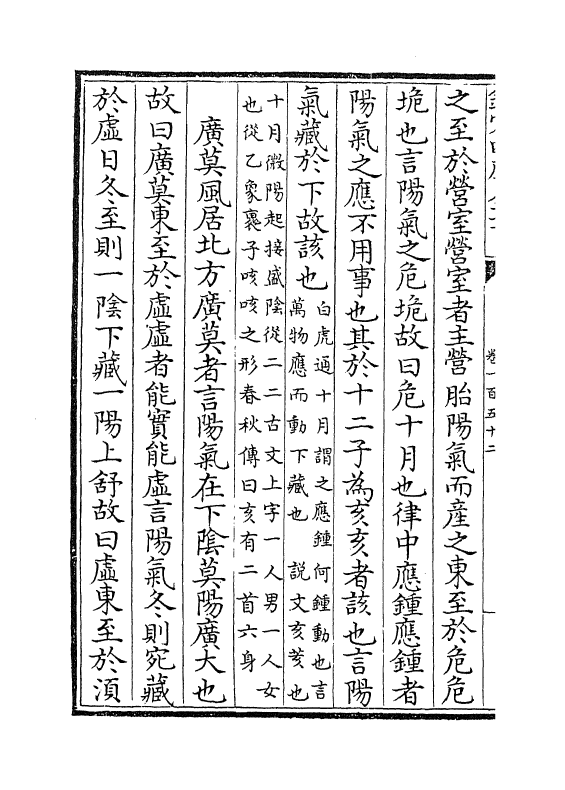 卷一百五十二
之至於營室營室者主營胎陽氣而産之東至於危危
垝也言陽氣之危垝故曰危十月也律中應鍾應鍾者
陽氣之應不用事也其於十二子為亥亥者該也言陽
氣藏於下故該也
白虎通十月謂之應鍾何鍾動也言
萬物應而動下藏也　説文亥荄也
十月微陽起接盛陰從二二古文上字一人男一人女
也從乙象褢子咳咳之形春秋傳曰亥有二首六身
廣莫風居北方廣莫者言陽氣在下陰莫陽廣大也
故曰廣莫東至於虛虛者能實能虛言陽氣冬則宛藏
於虛日冬至則一陰下藏一陽上舒故曰虛東至於湏